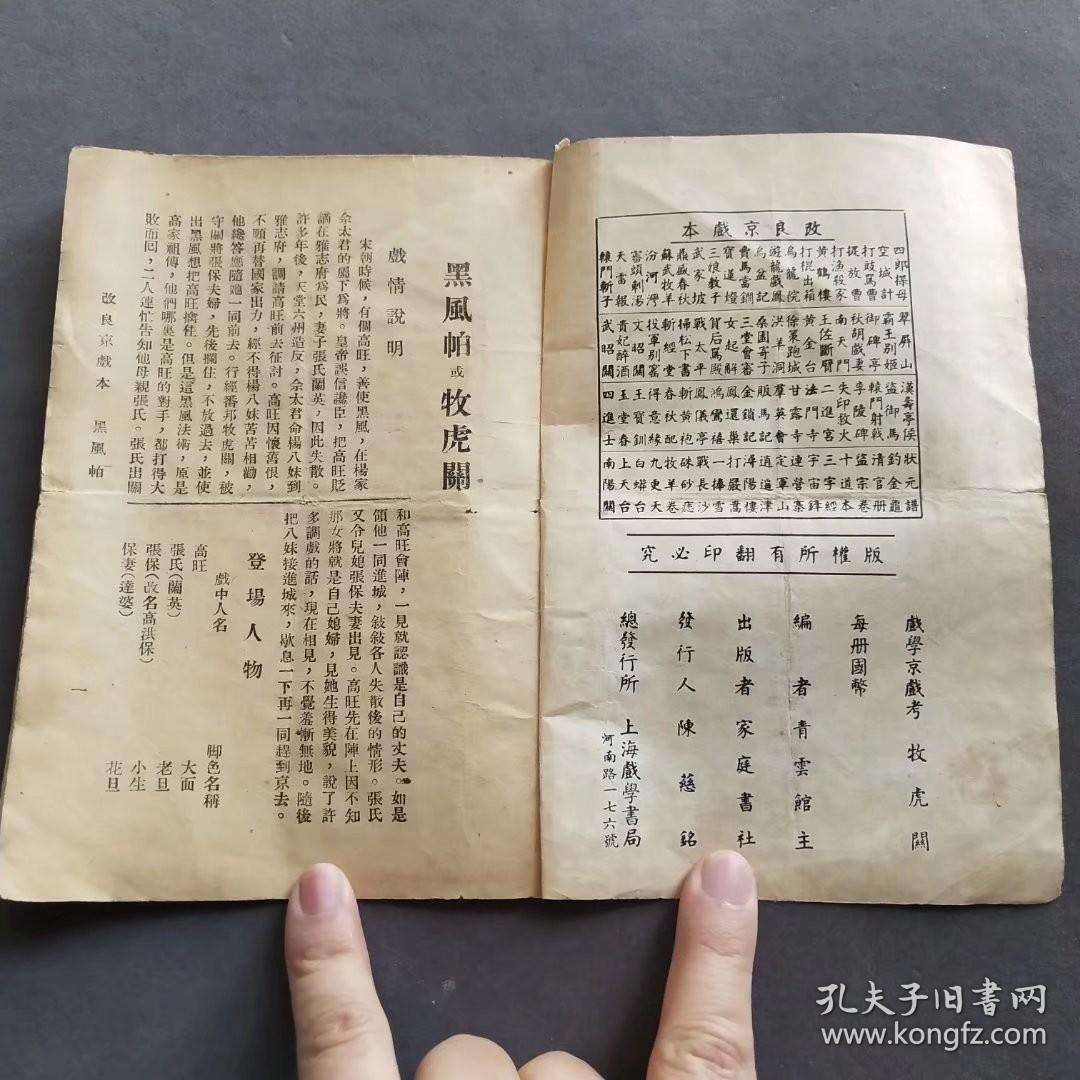 改良京戲本
四郎探母
空城計
打鼓罵曹
捉放曹
打漁殺家
黃鶴樓
打棍出箱
烏龍院
遊龍戲鳳
烏盆記
賣馬當鐧
寶蓮燈
三娘教子
武家坡
鼎盛春秋
蘇武牧羊
汾河灣
審頭刺湯
天雷報
轅門斬子
翠屏山
霸王別姬
御碑亭
秋胡戲妻
南天門
王佐斷臂
黃金台
徐策跑城
洪羊洞
桑園寄子
三堂會審
女起解
賀后罵殿
戰太平
掃松下書
斬經堂
投軍別窰
文昭關
貴妃醉酒
武昭關
漢壽亭侯
盜御馬
轅門射戟
李陵碑
失印救火
二進宮
法門寺
甘露寺
羣英會
販馬記
金鎖記
鳳還巢
鴻鸞禧
鳳儀亭
斬黃袍
春秋配
得意緣
玉堂春
四進士
狀元譜
釣金龜
清官册
盜宗卷
十道本
三字經
宇宙鋒
連營寨
定軍山
逍遙津
潯陽樓
打嚴嵩
一捧雪
戰長沙
硃砂痣
牧羊卷
九更天
白蟒台
上天台
南陽關
版權所有翻印必究
戲學京戲考 牧虎關
每册國幣
編者青雲館主
出版者家庭書社
發行人陳慈銘
總發行所 上海戲學書局
河南路一七六號
黑風帕或牧虎關
戲情說明
宋朝時候，有個高旺，善使黑風，在楊家
佘太君的屬下爲將。皇帝誤信讒臣，把高旺貶
謫在雅志府爲民，妻子張氏蘭英，因此失散。
許多年後，天堂六州造反，佘太君命楊八妹到
雅志府，調請高旺前去征討。高旺因懷舊恨，
不願再替國家出力，經不得楊八妹苦苦相勸，
他纔答應隨她一同前去。行經番邦牧虎關，被
守關將張保夫婦，先後攔住，不放過去，並使
出黑風想把高旺擒住。但是這黑風法術，原是
高家祖傳，他們哪裏是高旺的對手，都打得大
敗而回，二人連忙告知他母親張氏。張氏出關
改良京戲本 黑風帕
和高旺會陣，一見就認識是自己的丈夫。如是
領他一同進城，敍敍各人失散後的情形。張氏
又令兒媳張保夫妻出見。高旺先在陣上因不知
那女將就是自己媳婦，見她生得美貌，說了許
多調戲的話，現在相見，不覺羞慚無地。隨後
把八妹接進城來，歇息一下再一同趕到京去。
登場人物
戲中人名 脚色名稱
高旺 大面
張氏（蘭英） 老旦
張保（改名高洪保） 小生
保妻（達婆） 花旦
一
孔夫子旧书网
www.kongfz.com